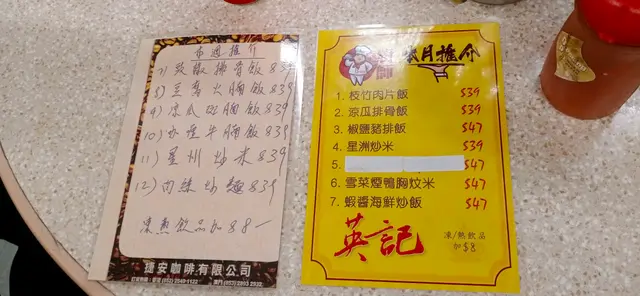 本週推介
7) 豉椒排骨飯 $39
8) 豆腐火腩飯 $39
9) 涼瓜斑腩飯 $39
10) 咖喱牛腩飯 $39
11) 星州炒米 $39
12) 肉絲炒麵 $39
凍熱飲品加 $8
捷安咖啡有限公司
廚師
每月推介
1. 枝竹肉片飯 $39
2. 涼瓜排骨飯 $39
3. 椒鹽豬排飯 $47
4. 星洲炒米 $39
5. $47
6. 雪菜煙鴨胸炆米 $47
7. 蝦醬海鮮炒飯 $47
英記
凍/熱飲品
加$8